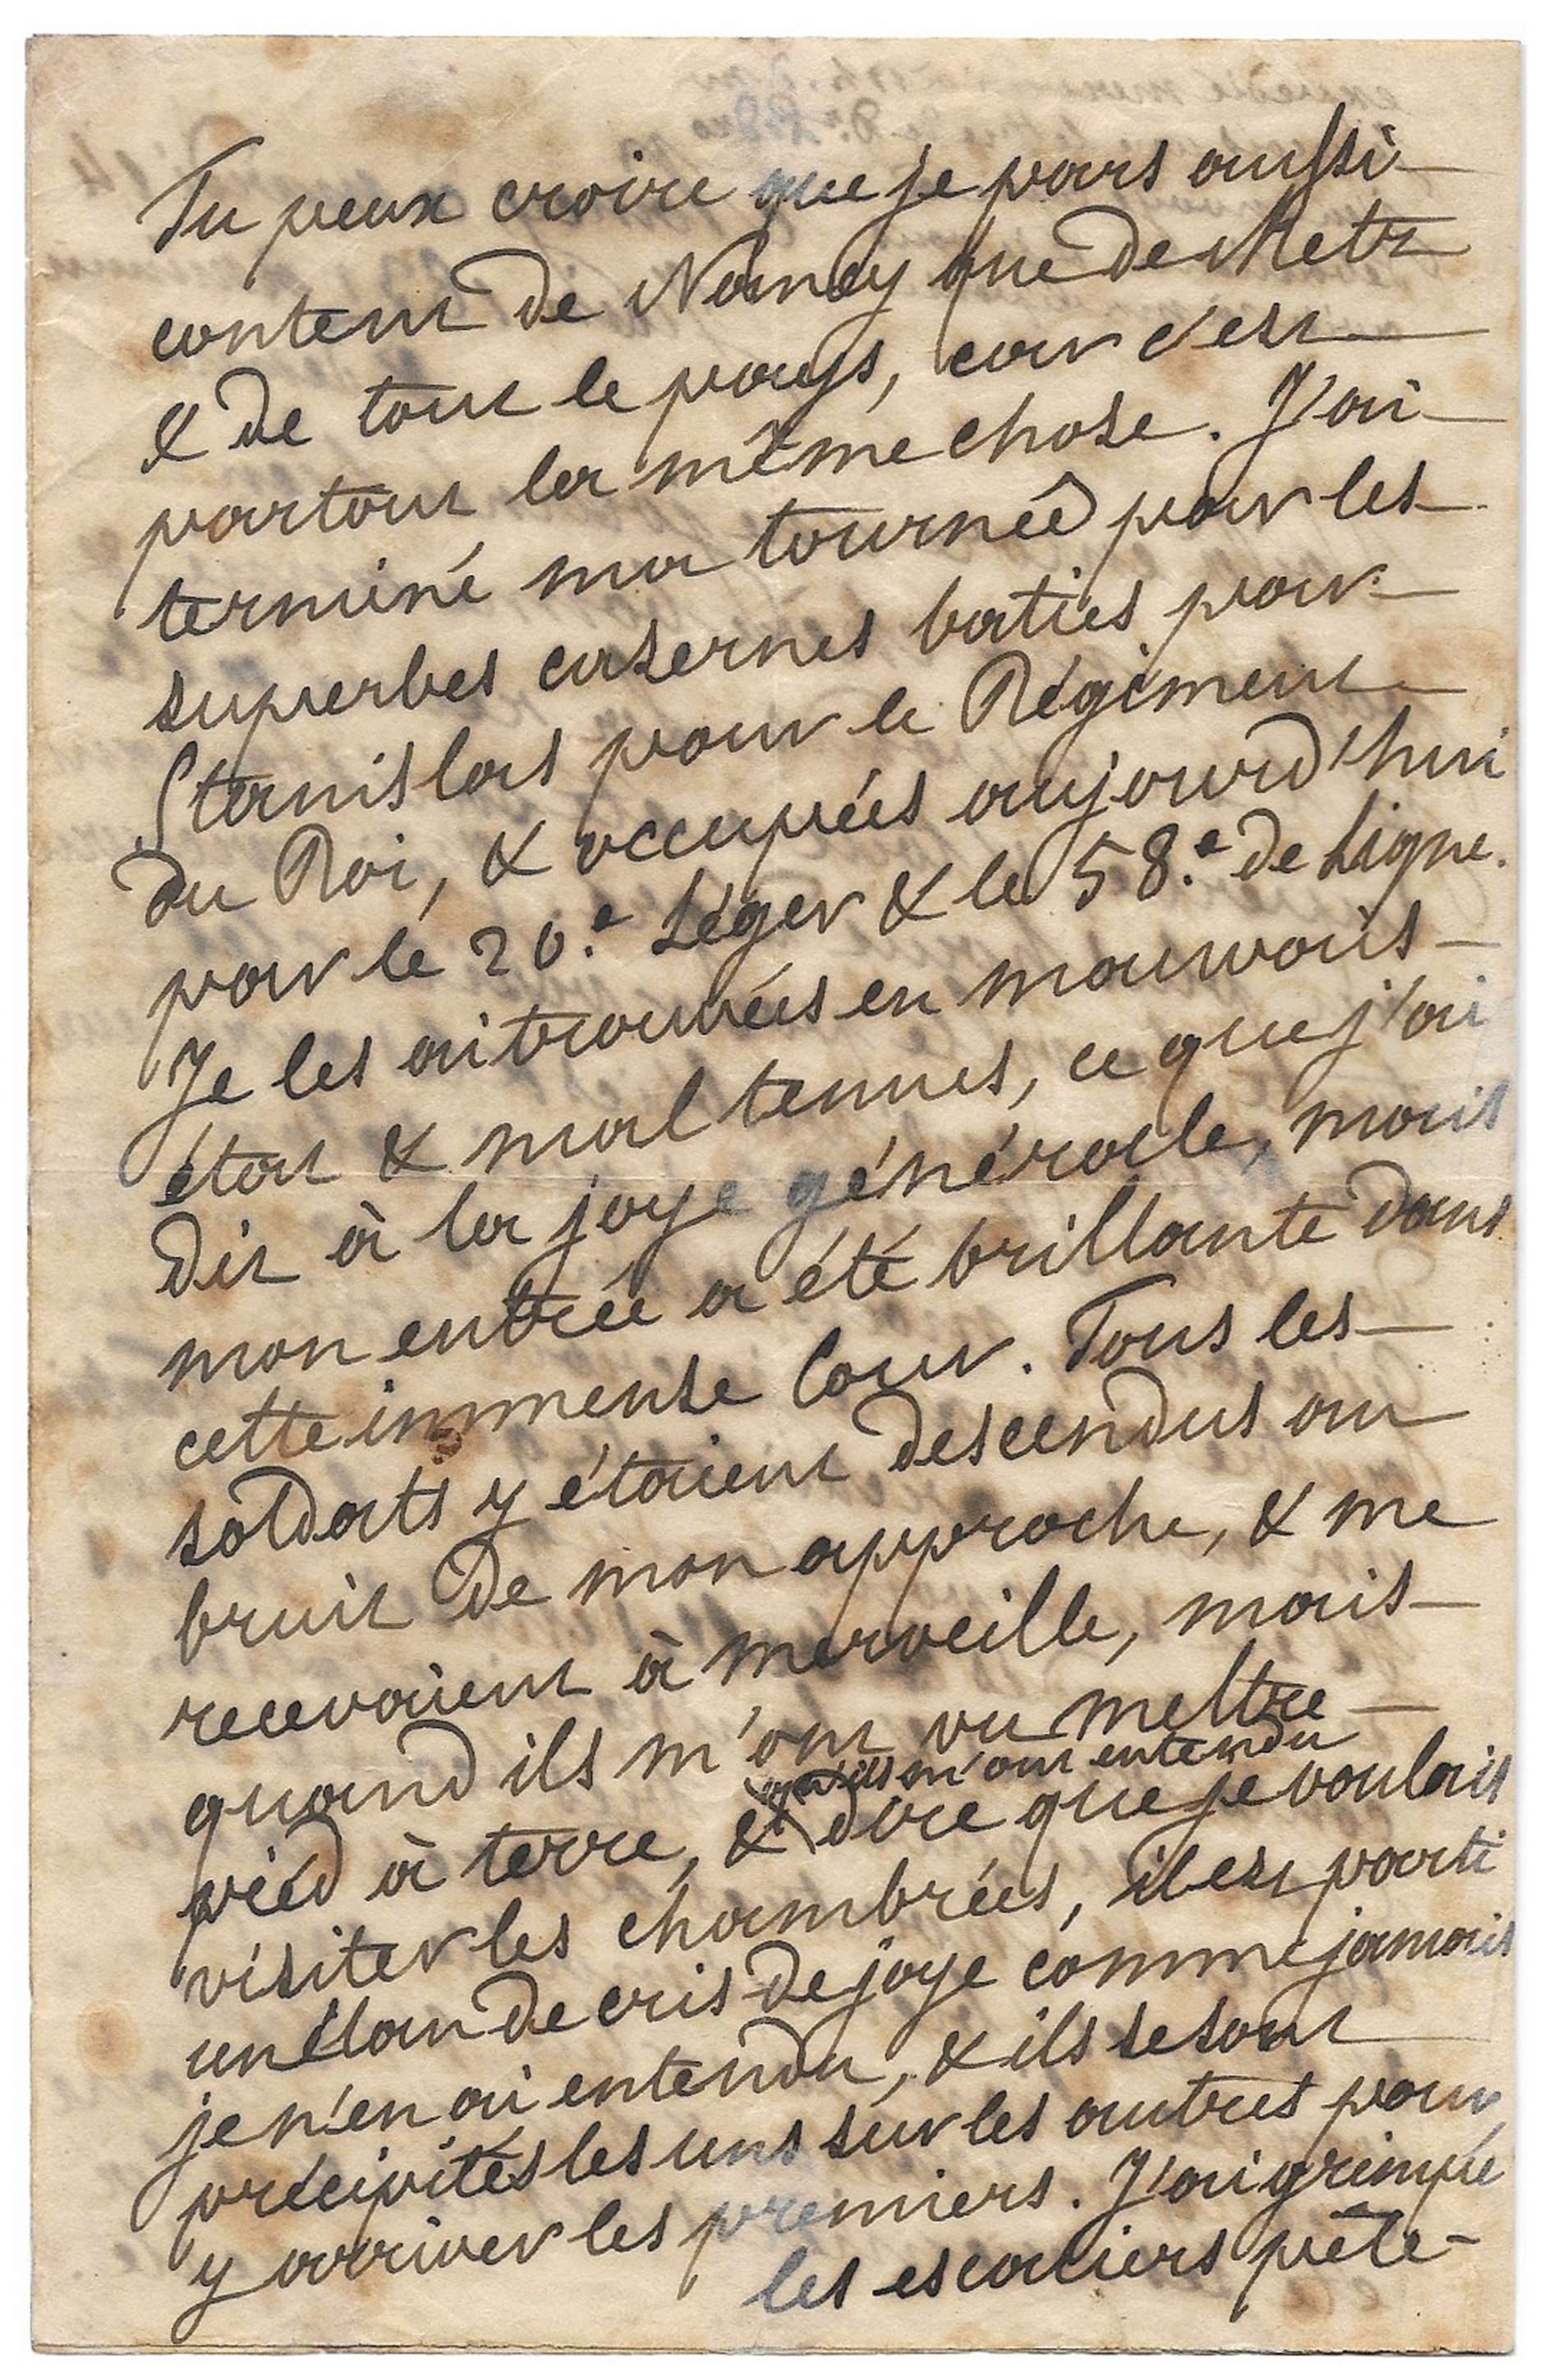 Tu peux croire que je pars aussi
content de Nancy que de Metz
& de tout le pays, car c'est
partout la même chose. J'ai
terminé ma tournée par les
superbes casernes baties par
Stanislas pour le Régiment
du Roi, & occupées aujourd'hui
par le 20.e Léger & le 58.e de Ligne.
Je les ai trouvées en mauvais
état & mal tenues, ce que j'ai
dit à la joye générale, mais
mon entrée a été brillante dans
cette immense Cour. Tous les
soldats y étaient descendus au
bruit de mon approche, & me
recevaient à merveille, mais
quand ils m'ont vu mettre
qu'ils m'ont entendu
pied à terre, & dire que je voulais
visiter les chambrées, il est parti
un élan de cris de joye comme jamais
je n'en ai entendu, & ils se sont
précipités les uns sur les autres pour
y arriver les premiers. J'ai grimpé
les escaliers pêle-